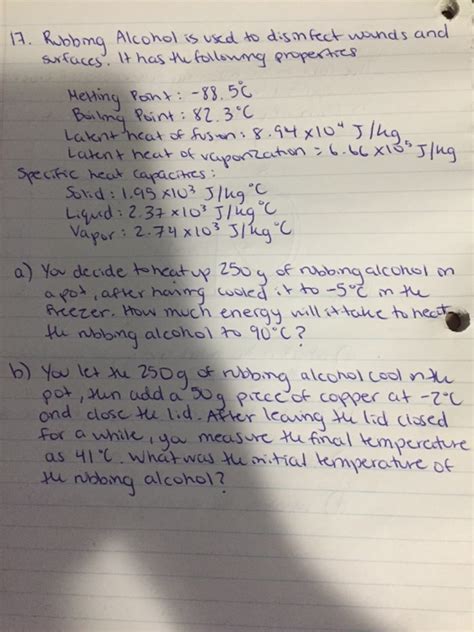 17. Rubbing Alcohol is used to disinfect wounds and
surfaces. It has the following properties
Melting Point: -88.5°C
Boiling Point: 82.3°C
Latent heat of fusion: 8.94 x10⁴ J/kg
Latent heat of vaporization = 6.66 x10⁵ J/kg
Specific heat capacities:
Solid: 1.95 x10³ J/kg°C
Liquid: 2.37 x10³ J/kg°C
Vapor: 2.74 x10³ J/kg°C
a) You decide to heat up 250g of rubbing alcohol in
a pot, after having cooled it to -5°C in the
freezer. How much energy will it take to heat
the rubbing alcohol to 90°C?
b) You let the 250g of rubbing alcohol cool in the
pot, then add a 50g piece of copper at -2°C
and close the lid. After leaving the lid closed
for a while, you measure the final temperature
as 41°C. What was the initial temperature of
the rubbing alcohol?